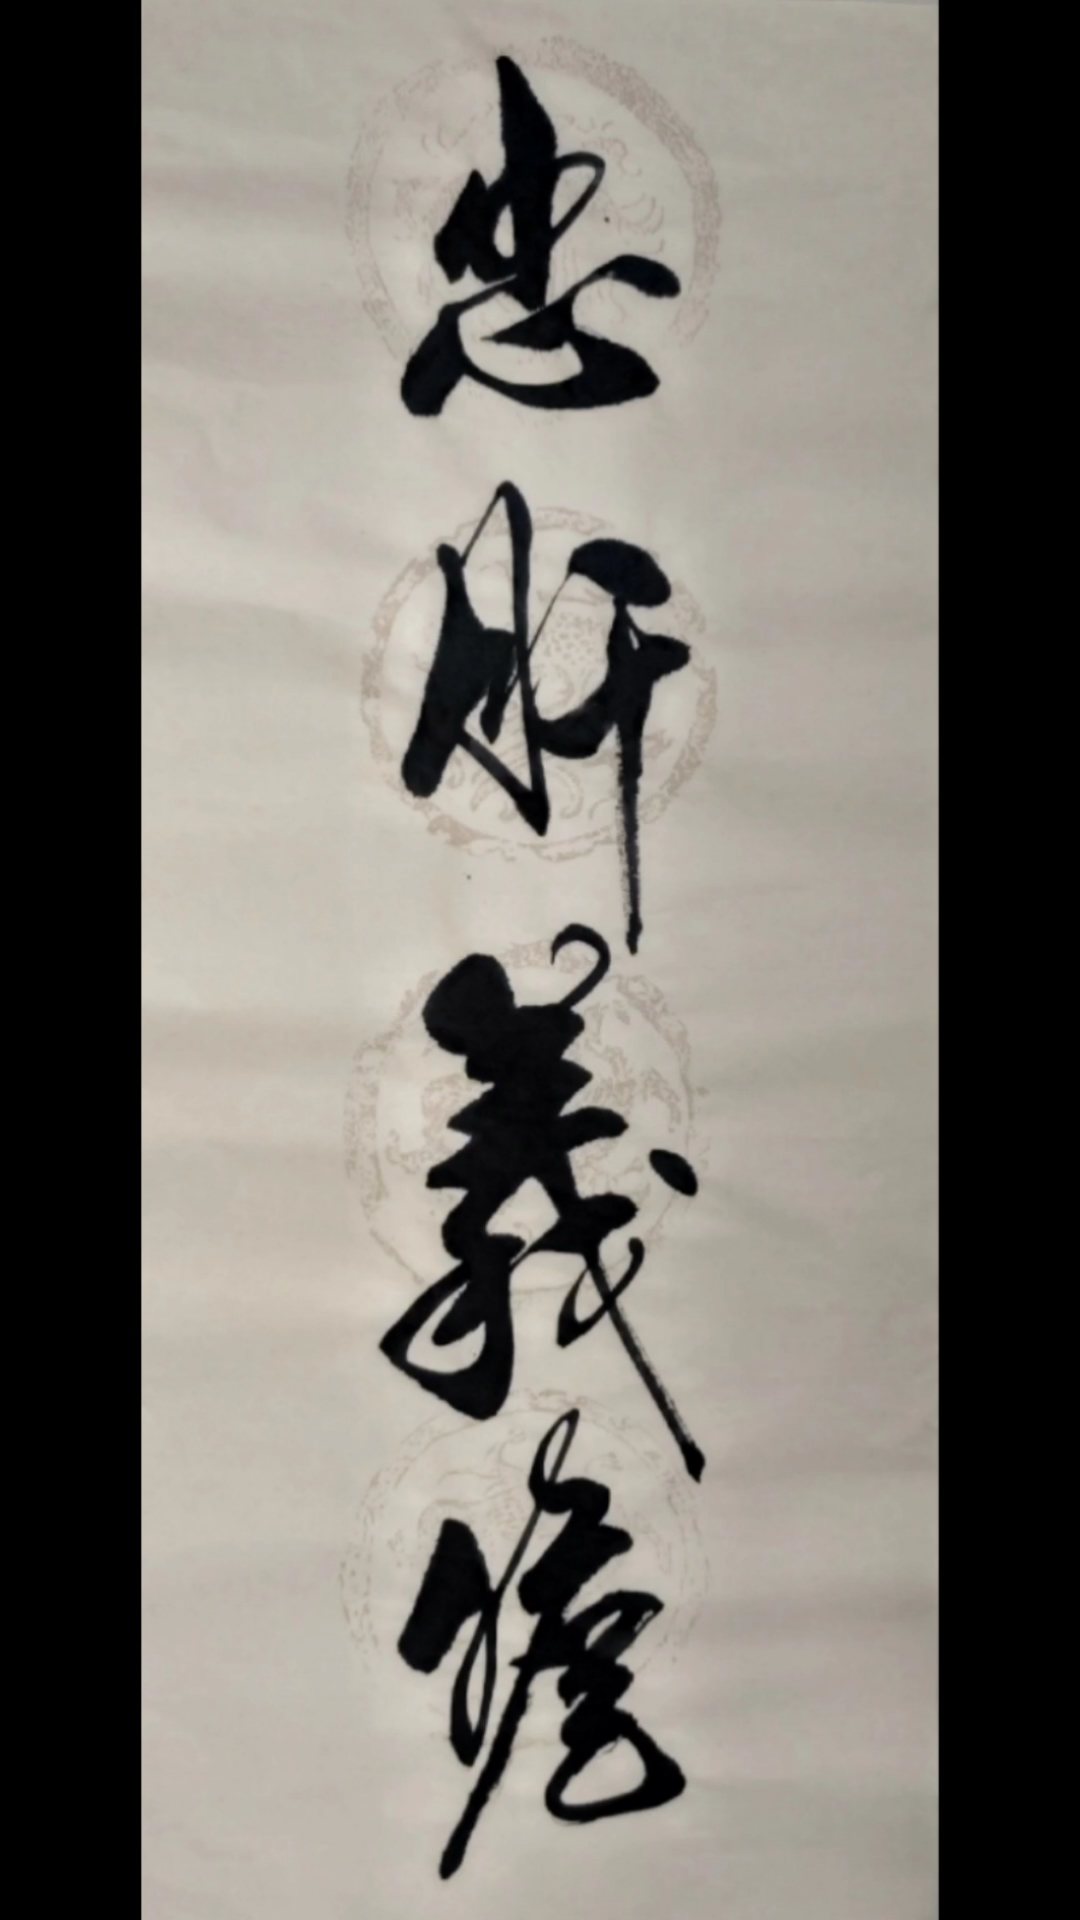 忠肝義膽